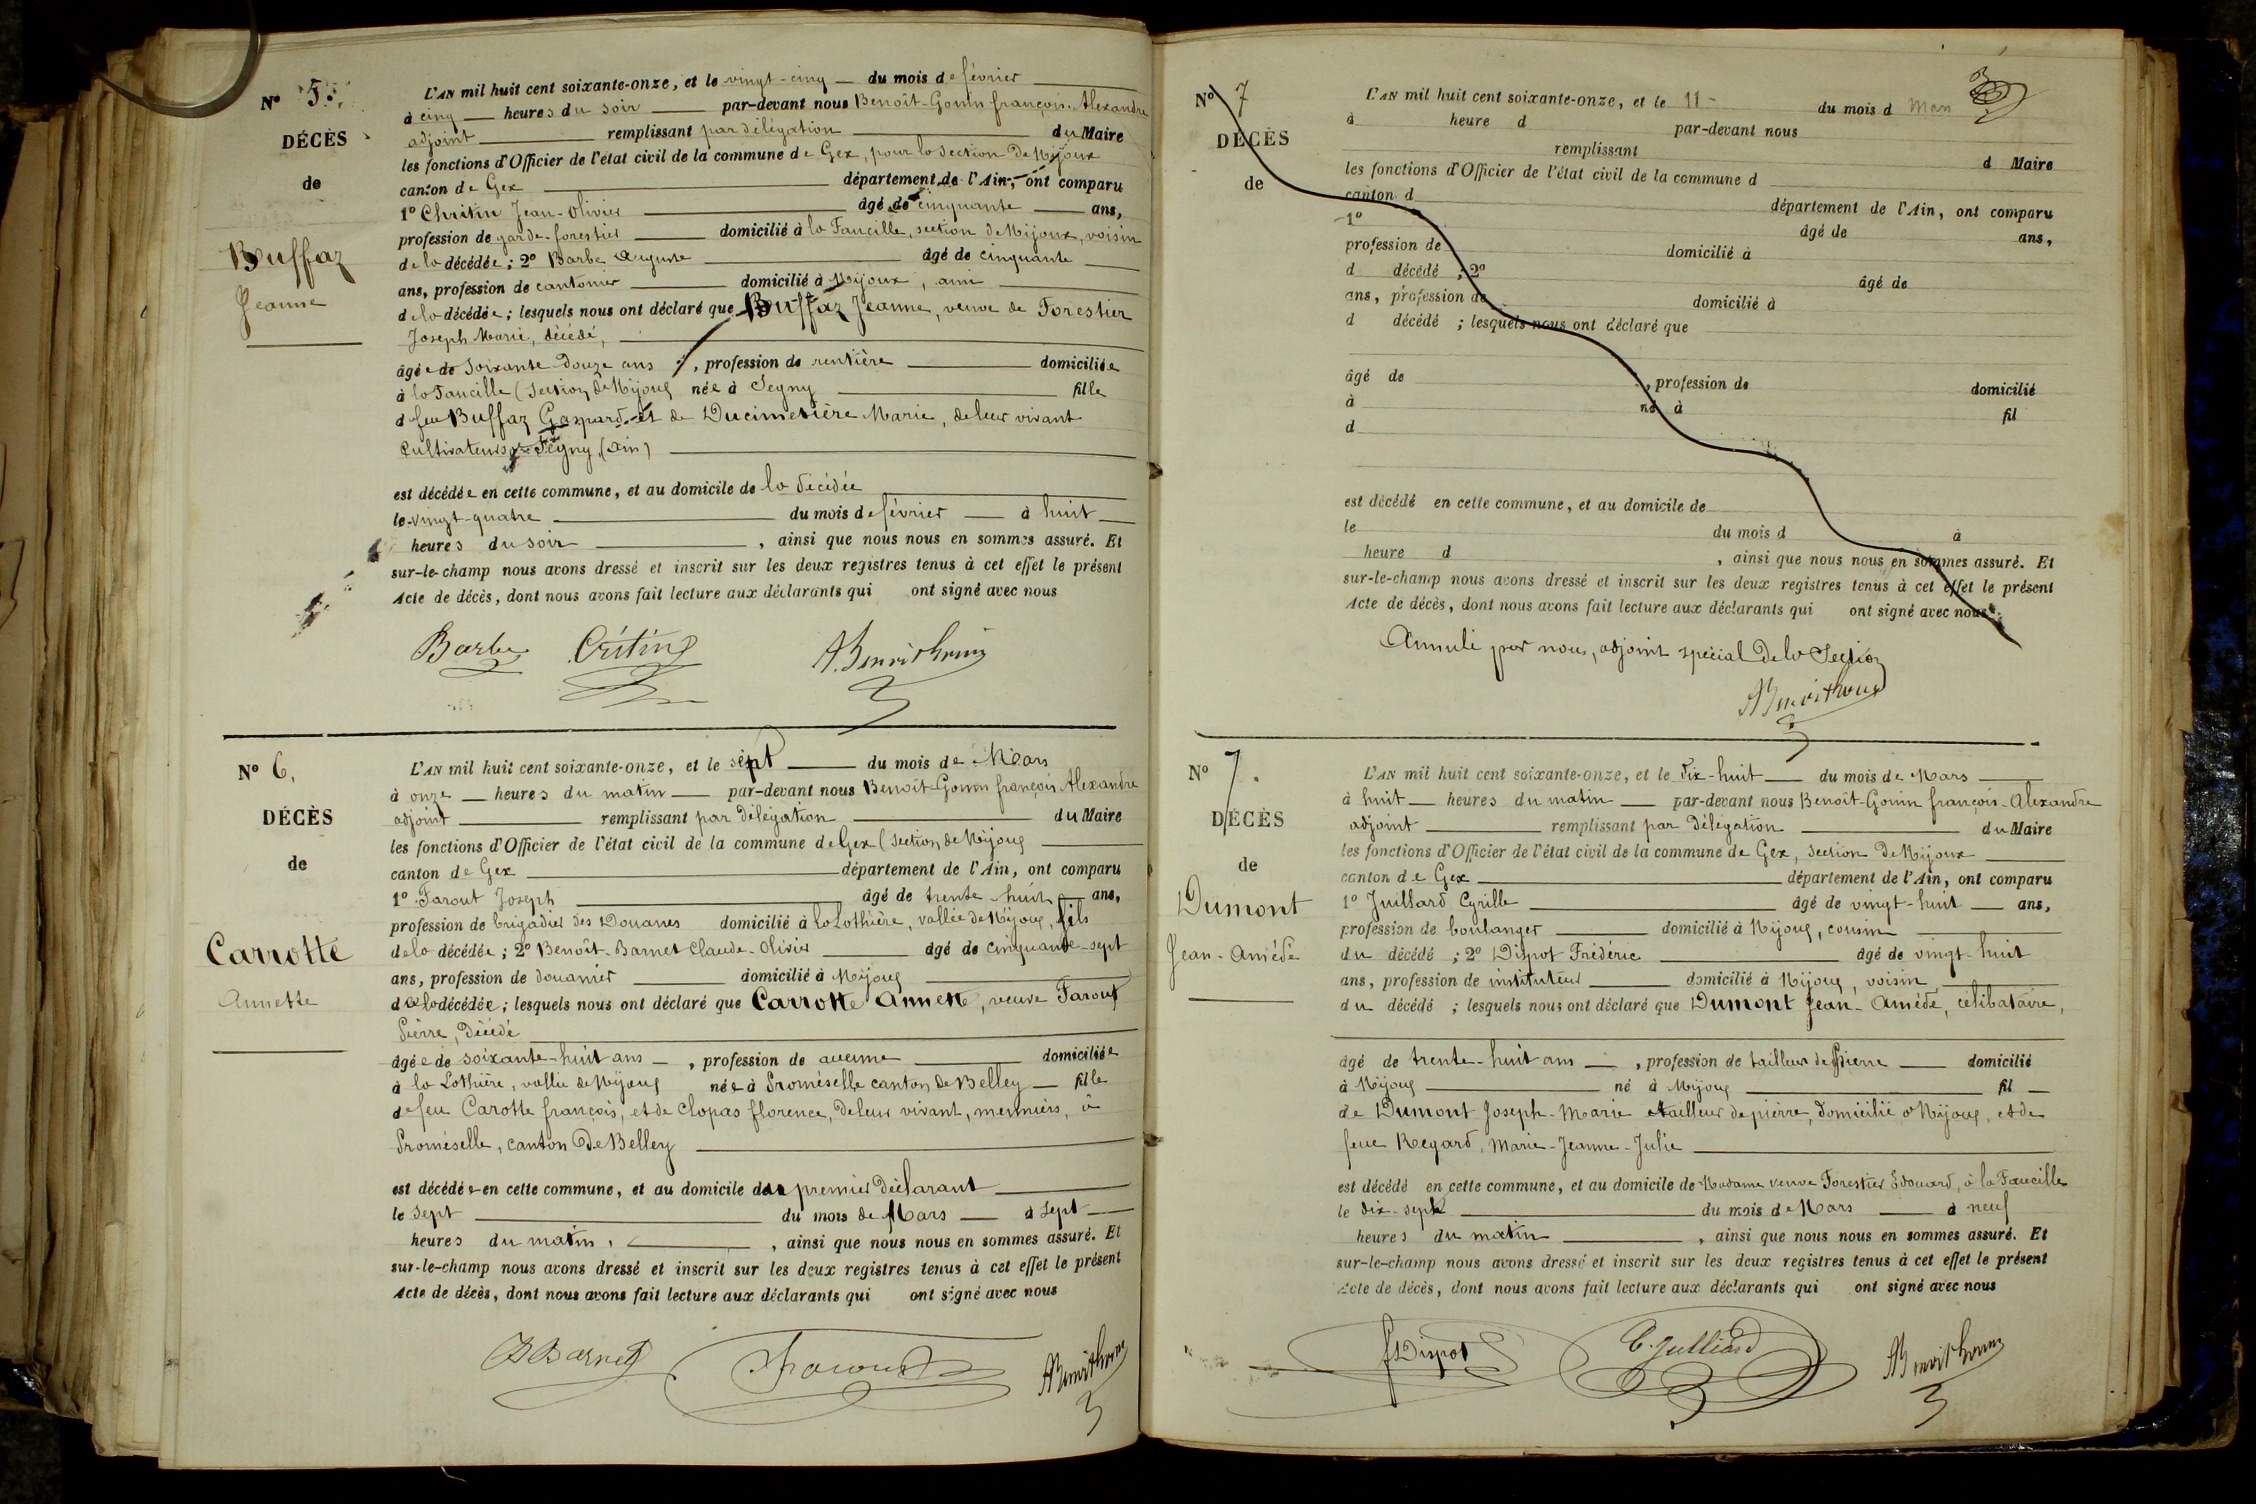 N° 5.
DÉCÈS
de
Buffaz
Jeanne
L'AN mil huit cent soixante-onze, et le vingt-cinq du mois de février
à cinq heures du soir par-devant nous Benoît-Gonin françois-Alexandre
adjoint remplissant par délégation du Maire
les fonctions d'Officier de l'état civil de la commune de Gex, pour la section de Mijoux
canton de Gex département de l'Ain, ont comparu
1° Christin Jean-Olivier âgé de cinquante ans,
profession de garde-forestier domicilié à la Faucille, section de Mijoux, voisin
de la décédée ; 2° Barbe Auguste âgé de cinquante
ans, profession de cantonier domicilié à Mijoux, ami
de la décédée ; lesquels nous ont déclaré que Buffaz Jeanne, veuve de Forestier
Joseph Marie, décédé,
âgée de soixante-douze ans, profession de rentière domiciliée
à la Faucille (section de Mijoux née à Segny fille
de feu Buffaz Gaspard et de Ducimetière Marie, de leur vivant
cultivateurs à Segny (Ain)
est décédée en cette commune, et au domicile de la décédée
le vingt-quatre du mois de février à huit
heures du soir, ainsi que nous nous en sommes assuré. Et
sur-le-champ nous avons dressé et inscrit sur les deux registres tenus à cet effet le présent
Acte de décès, dont nous avons fait lecture aux déclarants qui ont signé avec nous
Barbe Critin ABenoitGonin
N° 6.
DÉCÈS
de
Carrotte
Annette
L'AN mil huit cent soixante-onze, et le sept du mois de Mars
à onze heures du matin par-devant nous Benoît-Gonin françois Alexandre
adjoint remplissant par délégation du Maire
les fonctions d'Officier de l'état civil de la commune de Gex (section de Mijoux
canton de Gex département de l'Ain, ont comparu
1° Farout Joseph âgé de trente-huit ans,
profession de brigadier des Douanes domicilié à la Lothière, vallée de Mijoux, fils
de la décédée ; 2° Benoît-Barnet Claude-Olivier âgé de cinquante-sept
ans, profession de douanier domicilié à Mijoux
de la décédée ; lesquels nous ont déclaré que Carrotte Annette, veuve Farout
Pierre, décédé
âgée de soixante-huit ans, profession de aucune domiciliée
à la Lothière, vallée de Mijoux née à Proméselle canton de Belley fille
de feu Carotte françois, et de Clopas florence, de leur vivant, meuniers, à
Proméselle, canton de Belley
est décédée en cette commune, et au domicile du premier déclarant
le sept du mois de Mars à sept
heures du matin, ainsi que nous nous en sommes assuré. Et
sur-le-champ nous avons dressé et inscrit sur les deux registres tenus à cet effet le présent
Acte de décès, dont nous avons fait lecture aux déclarants qui ont signé avec nous
BBarnet Farout ABenoitGonin
N° 7
DÉCÈS
de
L'AN mil huit cent soixante-onze, et le 11 du mois d Mars
à heure d par-devant nous
remplissant d Maire
les fonctions d'Officier de l'état civil de la commune d
canton d département de l'Ain, ont comparu
1° âgé de ans,
profession de domicilié à
d décédé ; 2° âgé de
ans, profession de domicilié à
d décédé ; lesquels nous ont déclaré que
âgé de , profession de domicilié
à né à fil
d
est décédé en cette commune, et au domicile de
le du mois d à
heure d , ainsi que nous nous en sommes assuré. Et
sur-le-champ nous avons dressé et inscrit sur les deux registres tenus à cet effet le présent
Acte de décès, dont nous avons fait lecture aux déclarants qui ont signé avec nous
Annulé par nous, adjoint spécial de la Section
ABenoitGonin
N° 7.
DÉCÈS
de
Dumont
Jean-Amédé
L'AN mil huit cent soixante-onze, et le dix-huit du mois de Mars
à huit heures du matin par-devant nous Benoît-Gonin françois-Alexandre
adjoint remplissant par délégation du Maire
les fonctions d'Officier de l'état civil de la commune de Gex, section de Mijoux
canton de Gex département de l'Ain, ont comparu
1° Juillard Cyrille âgé de vingt-huit ans,
profession de boulanger domicilié à Mijoux, cousin
du décédé ; 2° Dispot Frédéric âgé de vingt-huit
ans, profession de instituteur domicilié à Mijoux, voisin
du décédé ; lesquels nous ont déclaré que Dumont Jean-Amédé, célibataire,
âgé de trente-huit ans, profession de tailleur de pierre domicilié
à Mijoux né à Mijoux fil
de Dumont Joseph-Marie tailleur de pierre, domicilié à Mijoux, et de
feue Regard, Marie-Jeanne-Julie
est décédé en cette commune, et au domicile de Madame veuve Forestier Edouard, à la Faucille
le dix-sept du mois de Mars à neuf
heures du matin, ainsi que nous nous en sommes assuré. Et
sur-le-champ nous avons dressé et inscrit sur les deux registres tenus à cet effet le présent
Acte de décès, dont nous avons fait lecture aux déclarants qui ont signé avec nous
fDispot C. Julliard ABenoitGonin